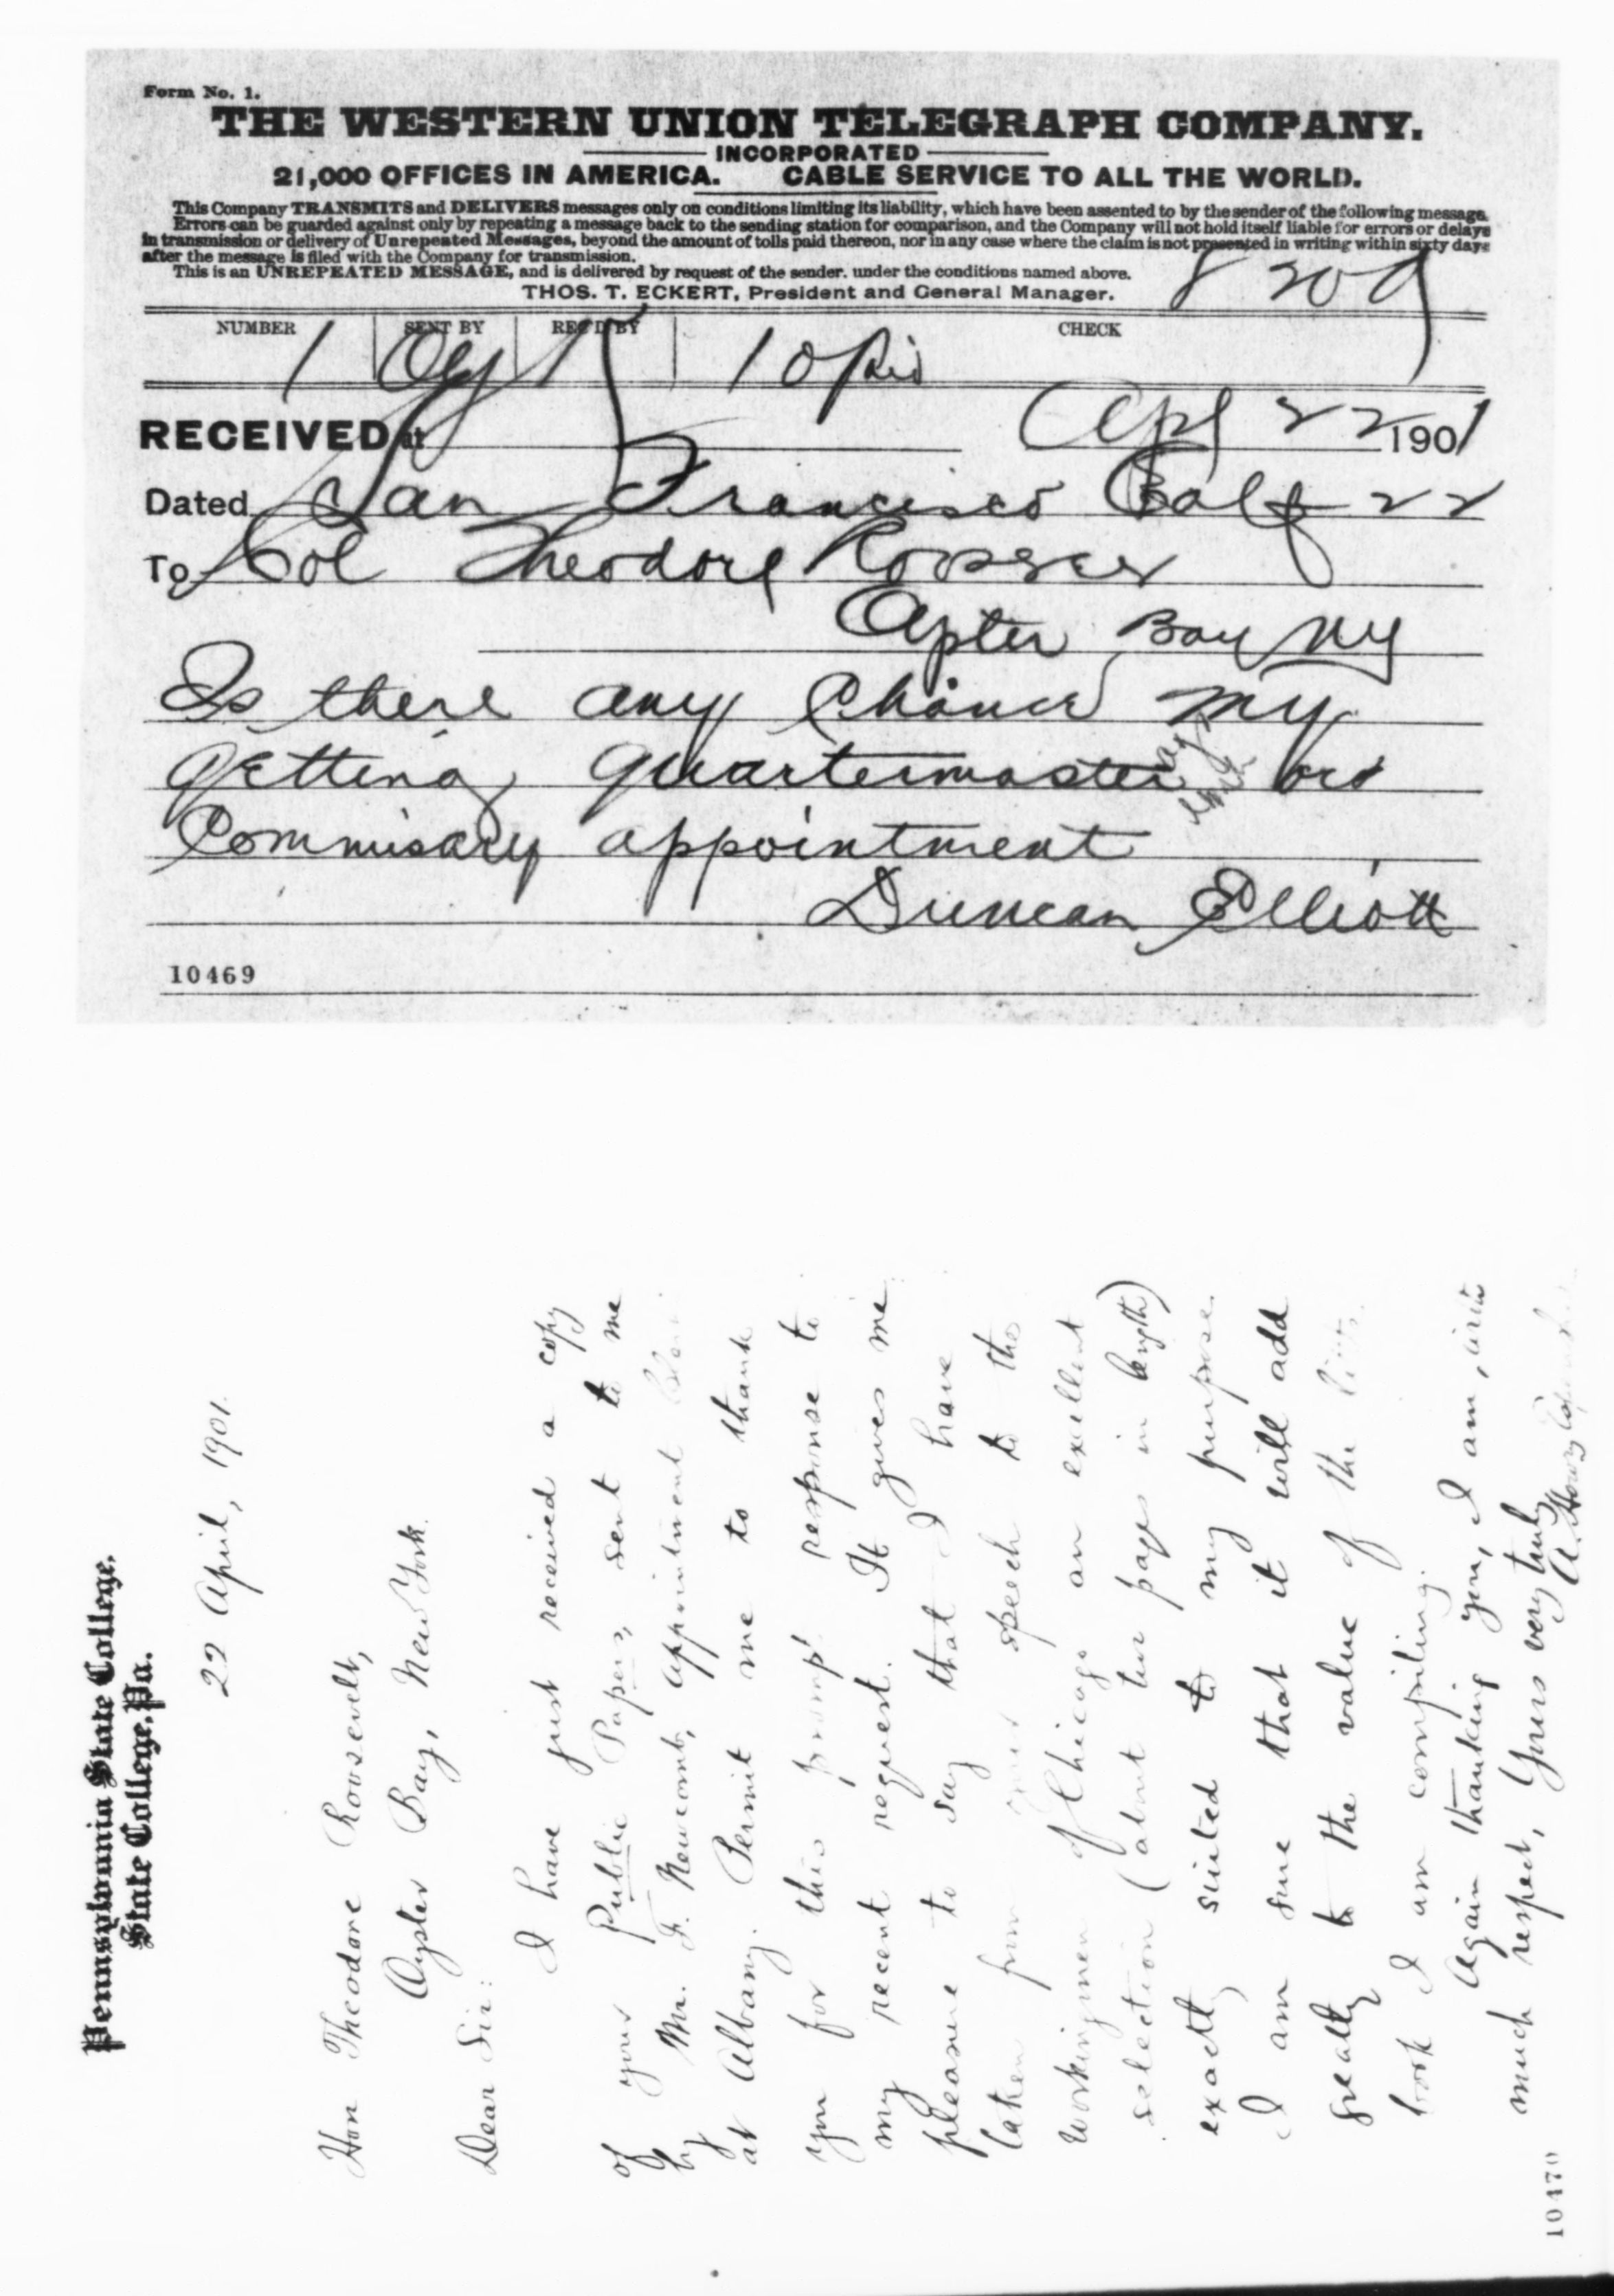 Form No. 1.
THE WESTERN UNION TELEGRAPH COMPANY.
INCORPORATED
21,000 OFFICES IN AMERICA. CABLE SERVICE TO ALL THE WORLD.
This Company TRANSMITS and DELIVERS messages only on conditions limiting its liability, which have been assented to by the sender of the following message.
Errors can be guarded against only by repeating a message back to the sending station for comparison, and the Company will not hold itself liable for errors or delays
in transmission or delivery of Unrepeated Messages, beyond the amount of tolls paid thereon, nor in any case where the claim is not presented in writing within sixty days
after the message is filed with the Company for transmission.
This is an UNREPEATED MESSAGE, and is delivered by request of the sender. under the conditions named above.
THOS. T. ECKERT, President and General Manager.
NUMBER SENT BY REC'D BY CHECK
1 10
RECEIVED at Apl 22 1901
Dated San Francisco Calf 22
To Col Theodore
Bay NY
Is there any Chance my
getting quartermaster or
Commisary appointment
Duncan Elliott
10469
Pennsylvania State College.
State College, Pa.
22 April, 1901.
Hon Theodore Roosevelt,
Oyster Bay, New York.
Dear Sir:
I have just received a copy
of your Public Papers, sent to me
by Mr. F. Newcomb, Appointment
at Albany. Permit me to thank
you for this prompt response to
my recent request. It gives me
pleasure to say that I have
taken from your speech to the
workingmen of Chicago an excellent
selection (about two pages in length)
exactly suited to my purpose.
I am sure that it will add
greatly to the value of the
book I am compiling.
Again thanking you, I am, with
much respect, Yours very truly,
A. Howry
10470